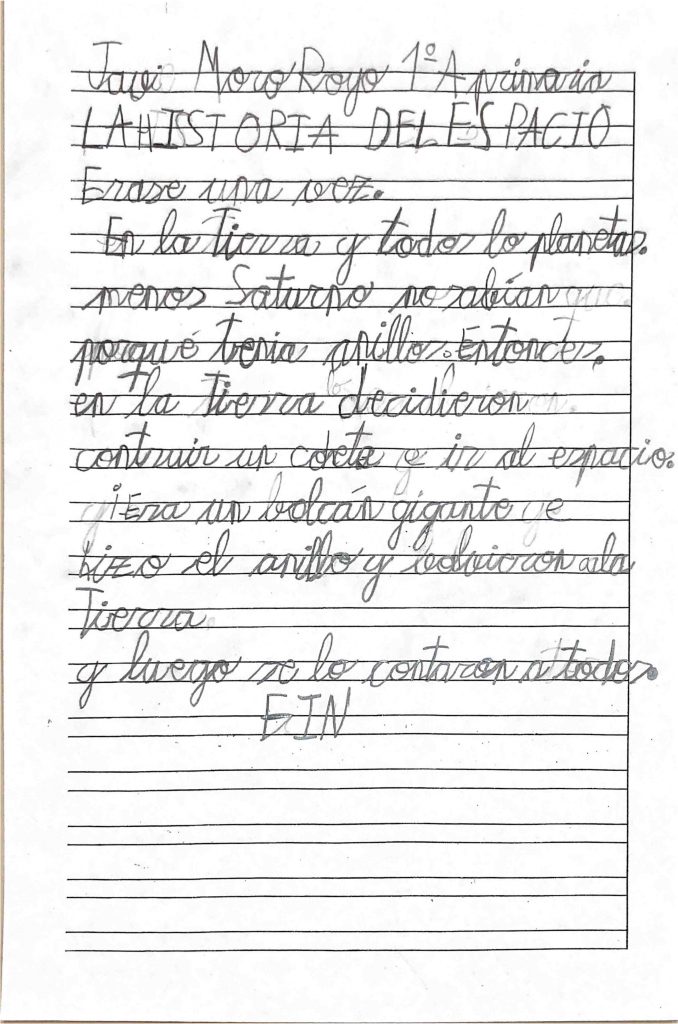 Javi Moro Royo 1º A primaria
LA HISTORIA DEL ESPACIO
Erase una vez.
En la Tierra y todos lo planetas.
menos Saturno no sabían que
porqué tenia anillos. Entonces.
en la Tierra decidieron
contruir un coete e ir al espacio.
y Era un bolcán gigante qe
hizo el anillo y bolvieron a la
Tierra
y luego se lo contaron a todos.
FIN